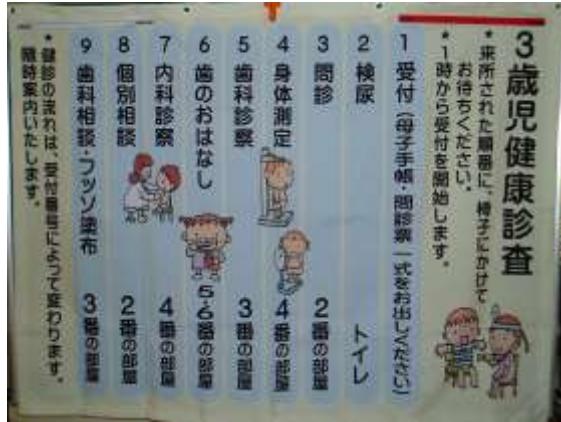 3歳児健康診査
★来所された順番に、椅子にかけて
お待ちください。
★1時から受付を開始します。
1 受付(母子手帳・問診票一式をお出しください)
2 検尿 トイレ
3 問診 2番の部屋
4 身体測定 4番の部屋
5 歯科診察 3番の部屋
6 歯のおはなし 5・6番の部屋
7 内科診察 4番の部屋
8 個別相談 2番の部屋
9 歯科相談・フッソ塗布 3番の部屋
★健診の流れは、受付番号によって変わります。
随時案内いたします。